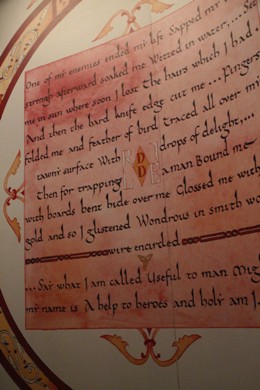 One of my enemies ended my life Sapped my
strength afterward soaked me Wetted in water, ... Set
me in sun where soon I lost The hairs which I had.
And then the hard knife edge cut me ... Fingers
folded me and feather of bird Traced all over my
tawny surface With drops of delight, ...
Then for trapping a man Bound me
with boards bent hide over me Glossed me with
gold and so I glistened Wondrous in smith wo
wire encircled
... Say what I am called Useful to man Mig
my name is A help to heroes and holy am I